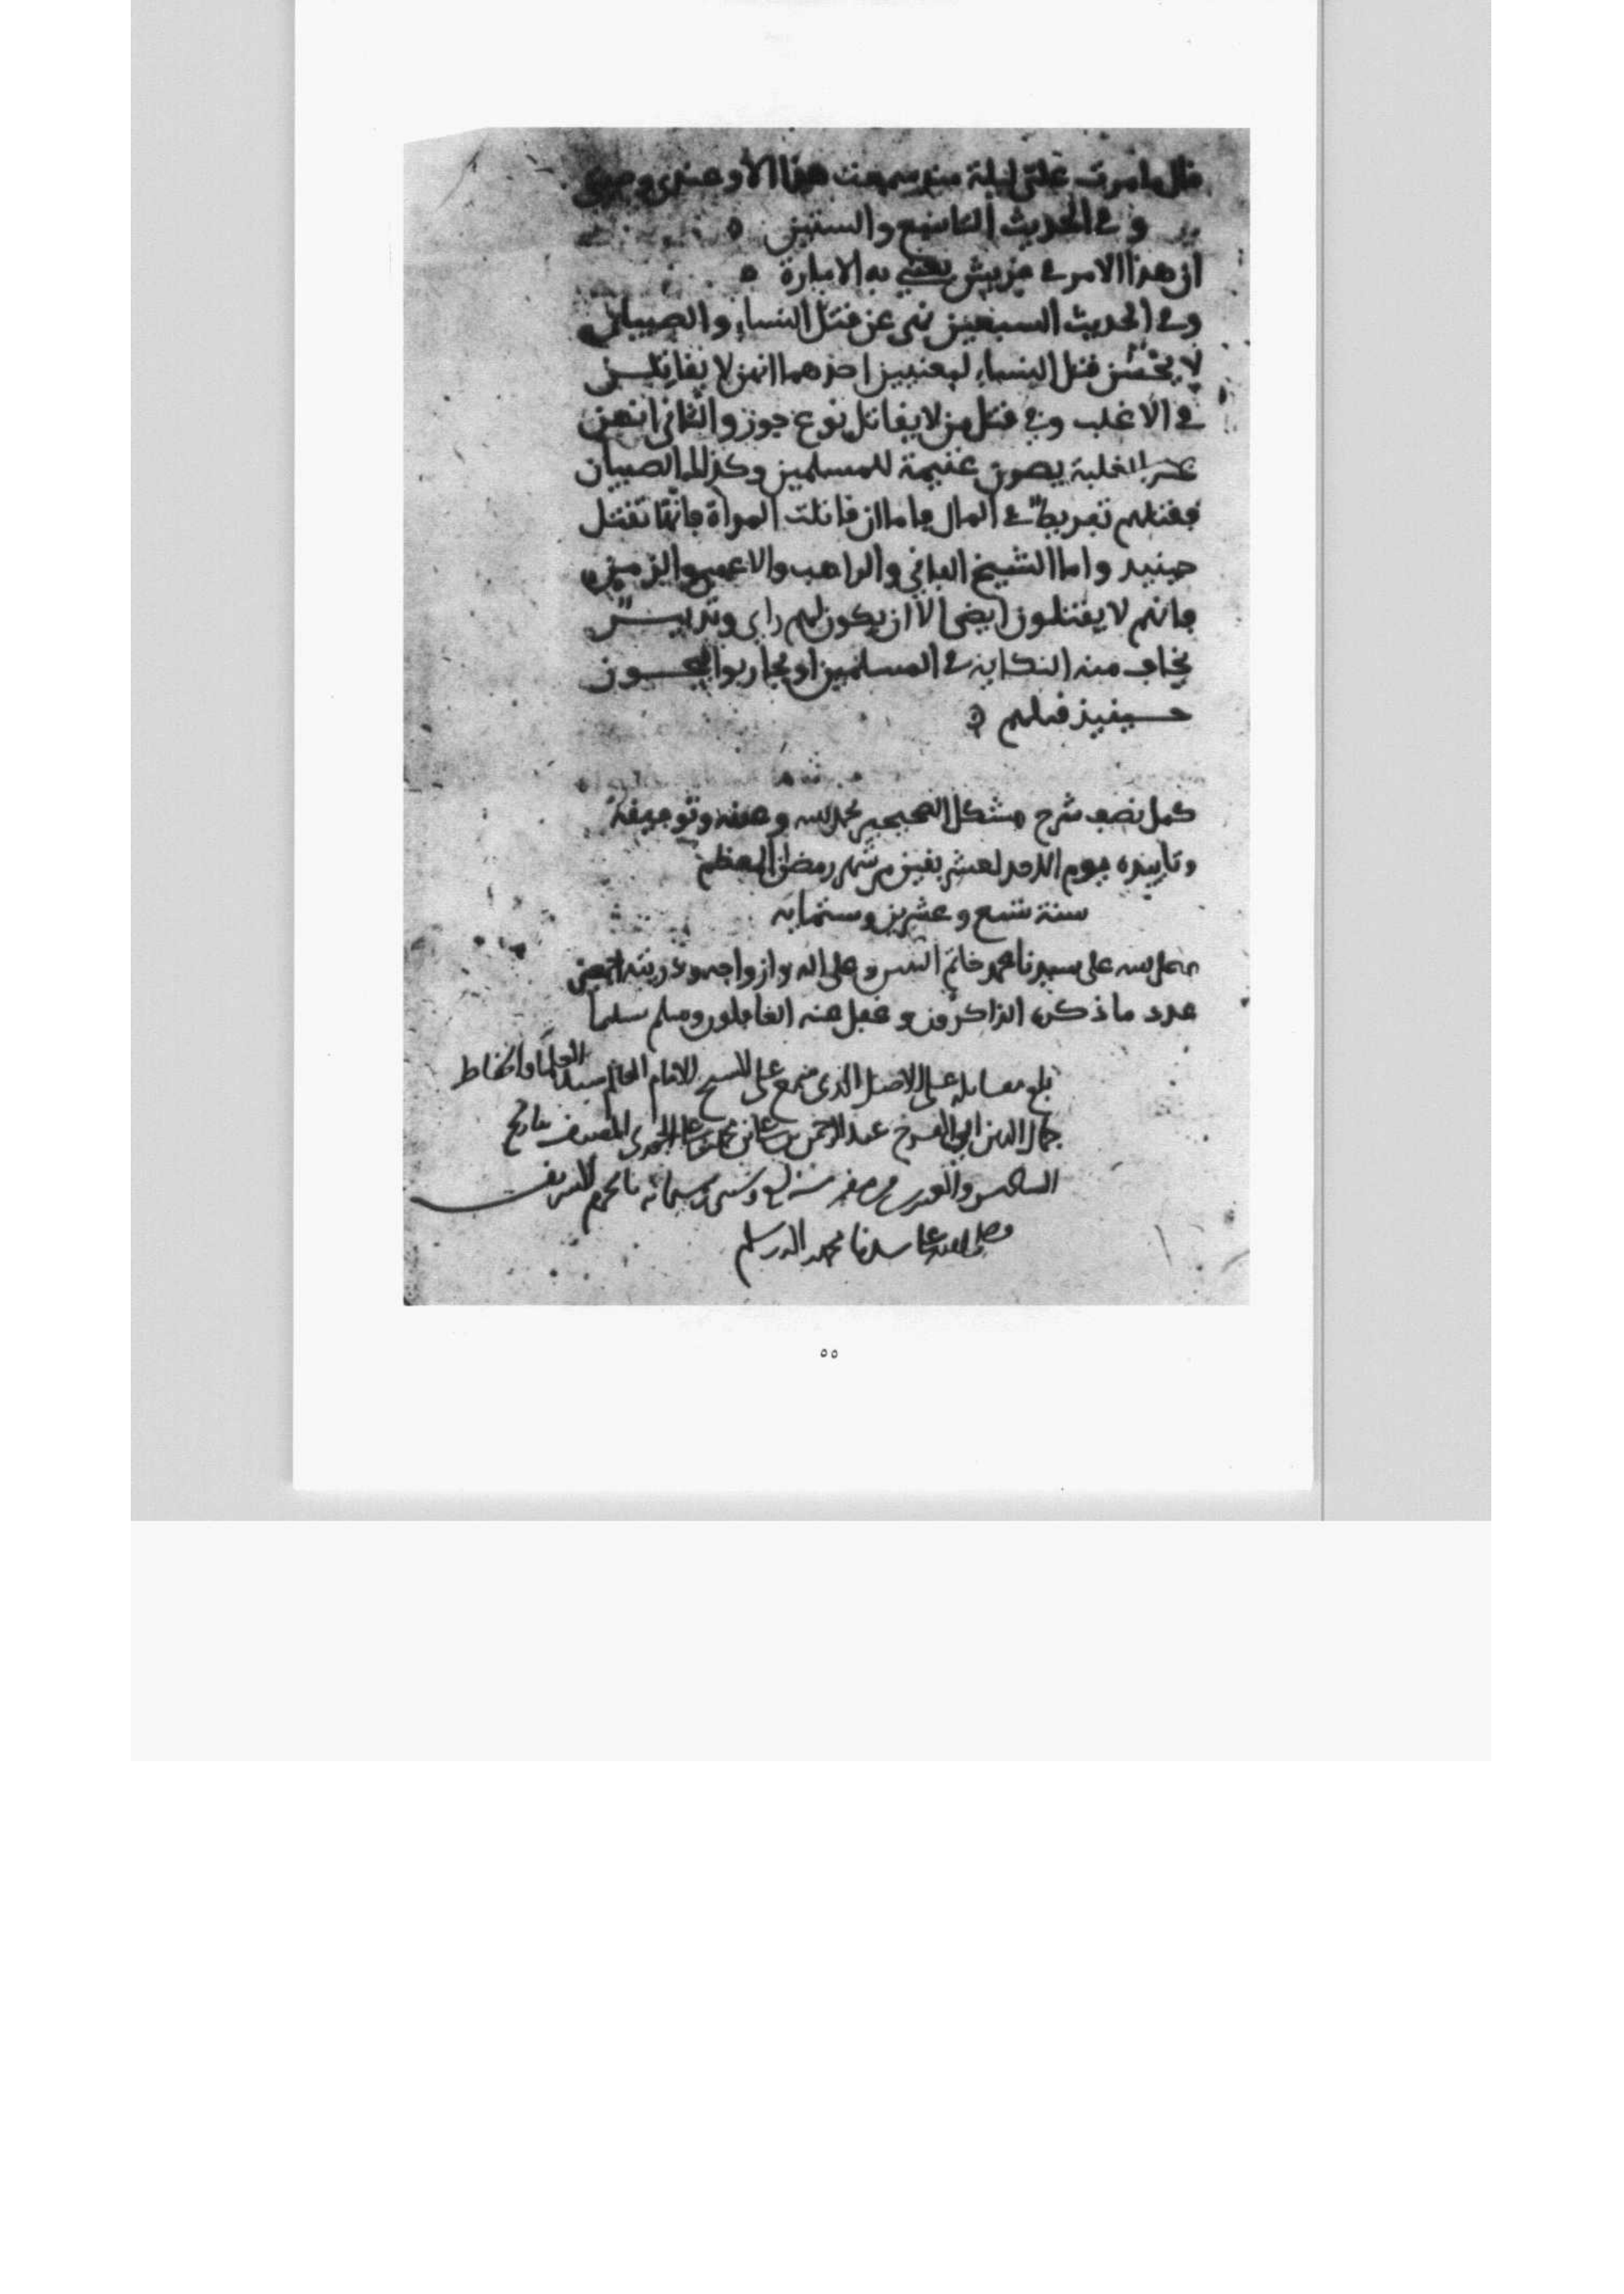 قال ما مرت علي ليلة منذ سمعت هذا الا و عندي وصيتي
و في الحديث التاسع والستين
ان هذا الامر في قريش يعني به الامارة
وفي الحديث السبعين نهى عن قتل النساء والصبيان
لا يحسن قتل النساء لمعنيين احدهما انهن لا يقاتلن
في الاغلب وفي قتل من لا يقاتل نوع جور والثاني انهن
عند الغلبة يصرن غنيمة للمسلمين وكذلك الصبيان
فقتلهم تفريط في المال فاما ان قاتلت المراة فانها تقتل
حينيد واما الشيخ الفاني والراهب والاعمى والزمن
فانهم لا يقتلون ايضا الا ان يكون لهم راي وتدبير
يخاف منه النكاية في المسلمين او يحاربوا فيجوز
حينيذ قتلهم
كمل نصف شرح مشكل الصحيحين بحمد الله وعونه وتوفيقه
وتاييده يوم الاحد لعشر بقين من شهر رمضان المعظم
سنة تسع وعشرين وستمايه
صلى الله على سيدنا محمد خاتم النبيين وعلى اله وازواجه وذريته اجمعين
عدد ما ذكره الذاكرون و غفل عنه الغافلون وسلم تسليما
بلغ مقابلة على الاصل الذي سمع على الشيخ الامام العالم سيد العلماء والحفاظ
جمال الدين ابي الفرج عبد الرحمن بن علي بن محمد بن علي الجوزي المصنف بتاريخ
السادس والعشرين من صفر سنة وستمائه بالحرم الشريف
وصلى الله على سيدنا محمد واله وسلم
٥٥